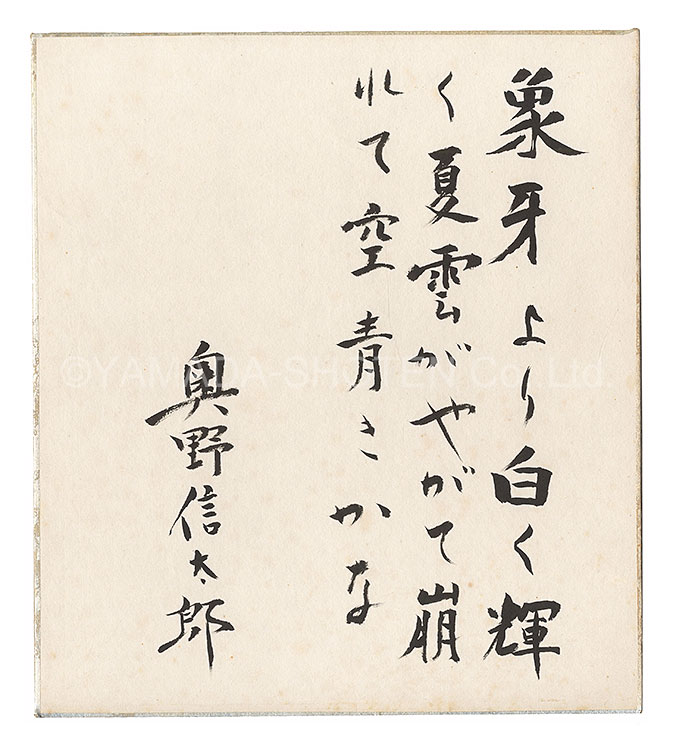 象牙より白く輝
く夏雲がやがて崩
れて空青きかな
奥野信太郎
© YAMADA-SHOTEN Co., Ltd.